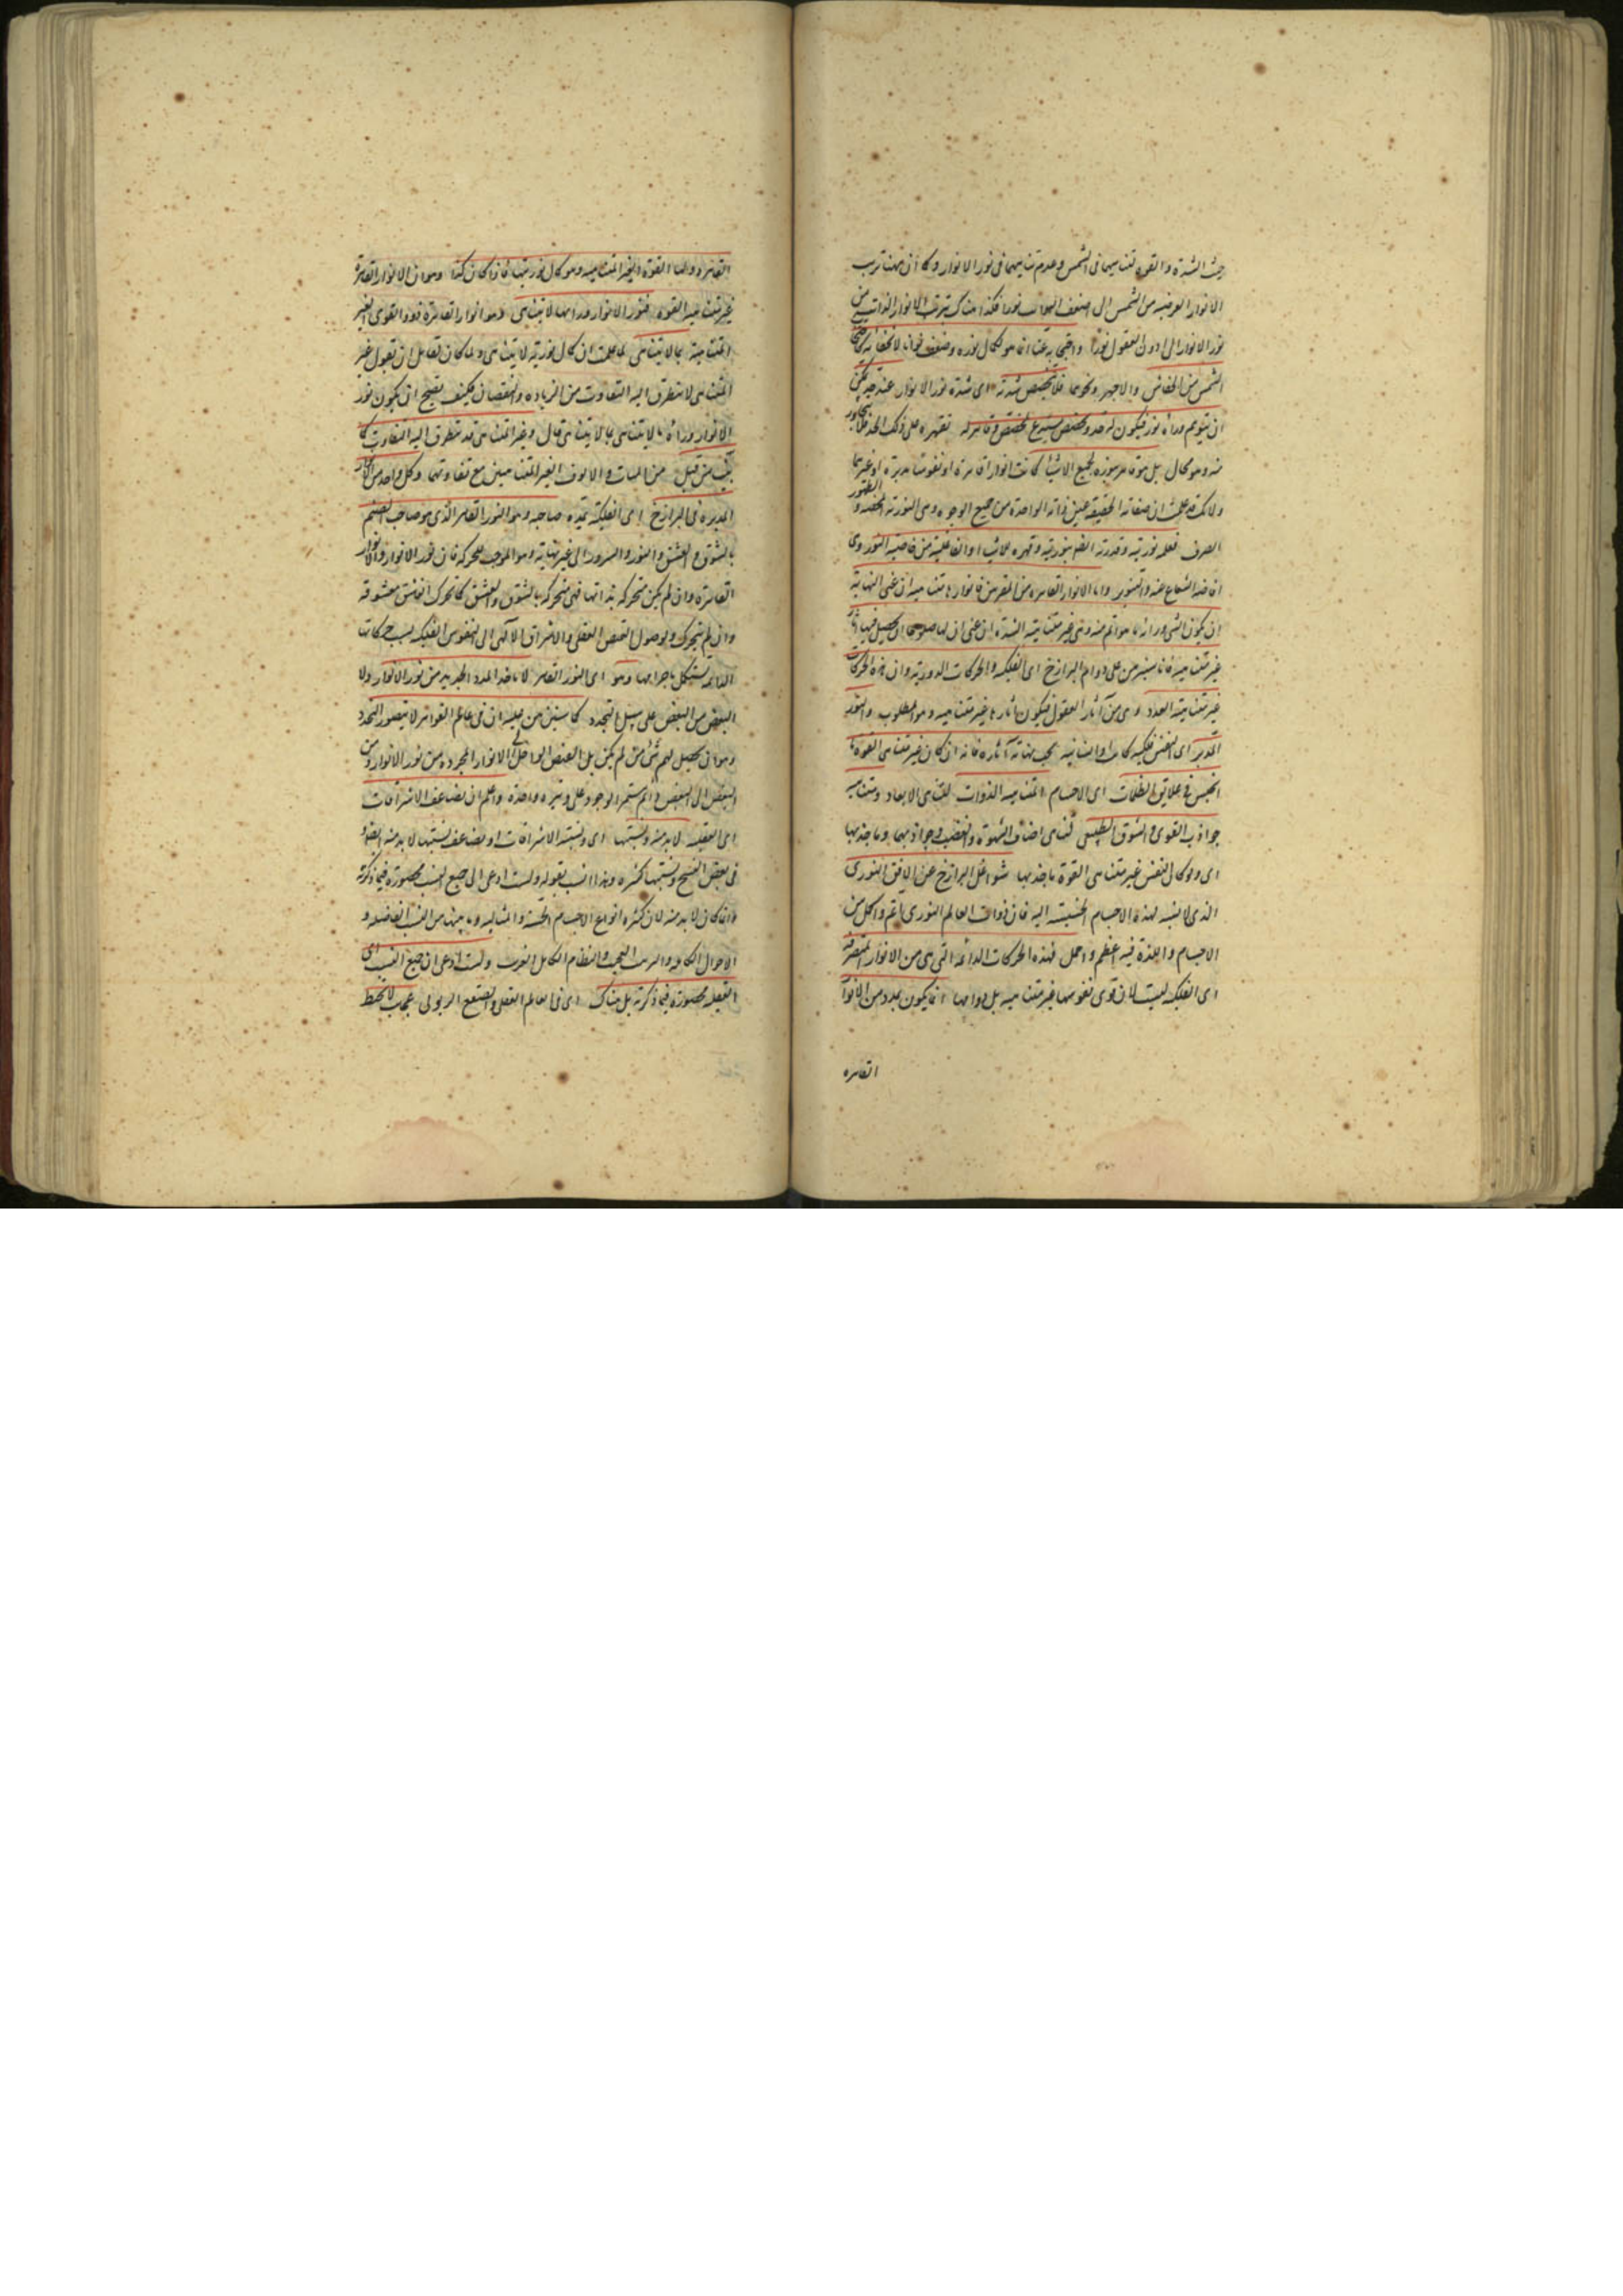 حيث الشدة والقوة لتناهيهما فى الشمس وعدم تناهيهما فى نور الانوار وكما أن ههنا ترتب
الانوار العرضية من الشمس الى اضعف نورا فكذا هناك ترتب الانوار الذاتية من
نور الانوار الى ادون العقول نورا واحتجابه عنا انما هو لكمال نوره وضعف قوانا لا لخفائه كما
الشمس من الخفافيش ونحوهما فلا تخصص شدته اى شدة نور الانوار عند حد يمكن
ان يتوهم وراءه نور فيكون له حد وتخصص يستدعى مخصصا وقاهرا له يقهره على ذلك الحد
منه وهو محال بل هو قاهر بنوره لجميع الاشياء كانت انوارا قاهرة او نفوسا مدبرة او غيرهما
ولانك قد علمت ان صفاته الحقيقية عين ذاته الواحدة من جميع الوجوه وهى النورية المحضة والظهور
الصرف فعلمه نوريته وقدرته ايضا بنوريته وقهره للاشياء والفاعلية من خاصية النور وهى
افاضة الشعاع عنه والتنوير واما الانوار القاهرة من المقربين فانوارها متناهية ان عنى النهاية
ان يكون الشى وراءه ما هو اتم منه وهى غير متناهية الشدة ان عنى ان لها صلوح ان يحصل منها آثار
غير متناهية فانا سنبرهن على دوام البرازخ اى الفلكية والحركات الدورية وان هذه الحركات
غير متناهية العدد وهى من آثار العقول فيكون آثارها غير متناهية وهو المطلوب والنور
المدبر اى النفس فلكية كانت او انسانية يجب نهاية آثاره فانه ان كان غير متناهى القوة ما
انحبس فى علايق الظلمات اى الاجسام المتناهية الذوات لتناهى الابعاد ومتناهية
جواذب القوى والشوق الطبيعى لتناهى اصناف الشهوة والغضب وجواذبهما وما جذبها
اى ولو كان النفس غير متناهى القوة ما جذبها شواغل البرازخ عن الافق النورى
الذى لا نسبة لهذه الاجسام الخسيسة اليه فان ذوات العالم النورى اتم واكمل من
الاجسام واللذة فيه اعظم واجمل فهذه الحركات الدائمة التى هى من الانوار المتصرفة
اى الفلكية ليست لان قوى نفوسها غير متناهية بل دوامها انما يكون بمدد من الانوار
القاهرة
القاهرة ولها القوة الغير المتناهية وهو كمال نوريتها فاذا كان كذا وهو ان الانوار القاهرة
غير متناهية القوة فنور الانوار وراءها لا يتناهى وهو انوار القاهرة ذوو القوى الغير
المتناهية بما لا يتناهى لما علمت ان كمال نوريته لا يتناهى ولما كان لقائل ان يقول غير
المتناهى لا يتطرق اليه التفاوت من الزيادة والنقصان فكيف يصح ان يكون نور
الانوار وراء ما لا يتناهى بما لا يتناهى قال وغير المتناهى قد يتطرق اليه التفاوت كما
بيناه من قبل من المآت والالوف الغير المتناهيين مع تفاوتهما وكل واحد من الانوار
المدبرة فى البرازخ اى الفلكية يمده صاحبه وهو النور القاهر الذى هو صاحب الصنم
بالشوق والعشق والنور والسرور الى غير نهاية وهو الموجب لتحركه فان نور الانوار والانوار
القاهرة وان لم يكن متحركة بذاتها فهى محركة بالشوق والعشق كما تحرك العاشق معشوقه
وان لم يتحرك وبوصول الفيض العقلى والاشراق الالهى الى النفوس الفلكية بسبب حركاتها
الدائمة يستكمل باجرامها وهو اى النور القاهر لا يأخذ المدد الجديد من نور الانوار ولا
البعض من البعض على سبيل التجدد كما سنبرهن عليه ان فى عالم القواهر لا يتصور التجدد
وهو ان يحصل لهم شى من لم يكن بل الفيض الواصل الى الانوار المجردة من نور الانوار ومن
البعض الى البعض دائم مستمر الوجود على وتيرة واحدة واعلم ان تضاعف الاشراقات
اى العقلية لا بد منه ونسبتها اى ونسبة الاشراقات او تضاعف نسبتها لا بد منه ايضا
فى بعض النسخ ونسبتها كثيرة وهذا انسب بقوله ولست ادعى الى جميع النسب محصورة فيما ذكرته
وانما كان لا بد منه لان كثرة انواع الاجسام الحسية والمثالية وما بينها من النسب الفاضلة و
الاحوال الكاملة والترتيب العجيب والنظام الكامل الغريب ولست ادعى ان جميع النسب اى
العقلية محصورة فيما ذكرته بل هناك اى فى العالم العقلى والصقع الربوبى عجايب لا يحيط